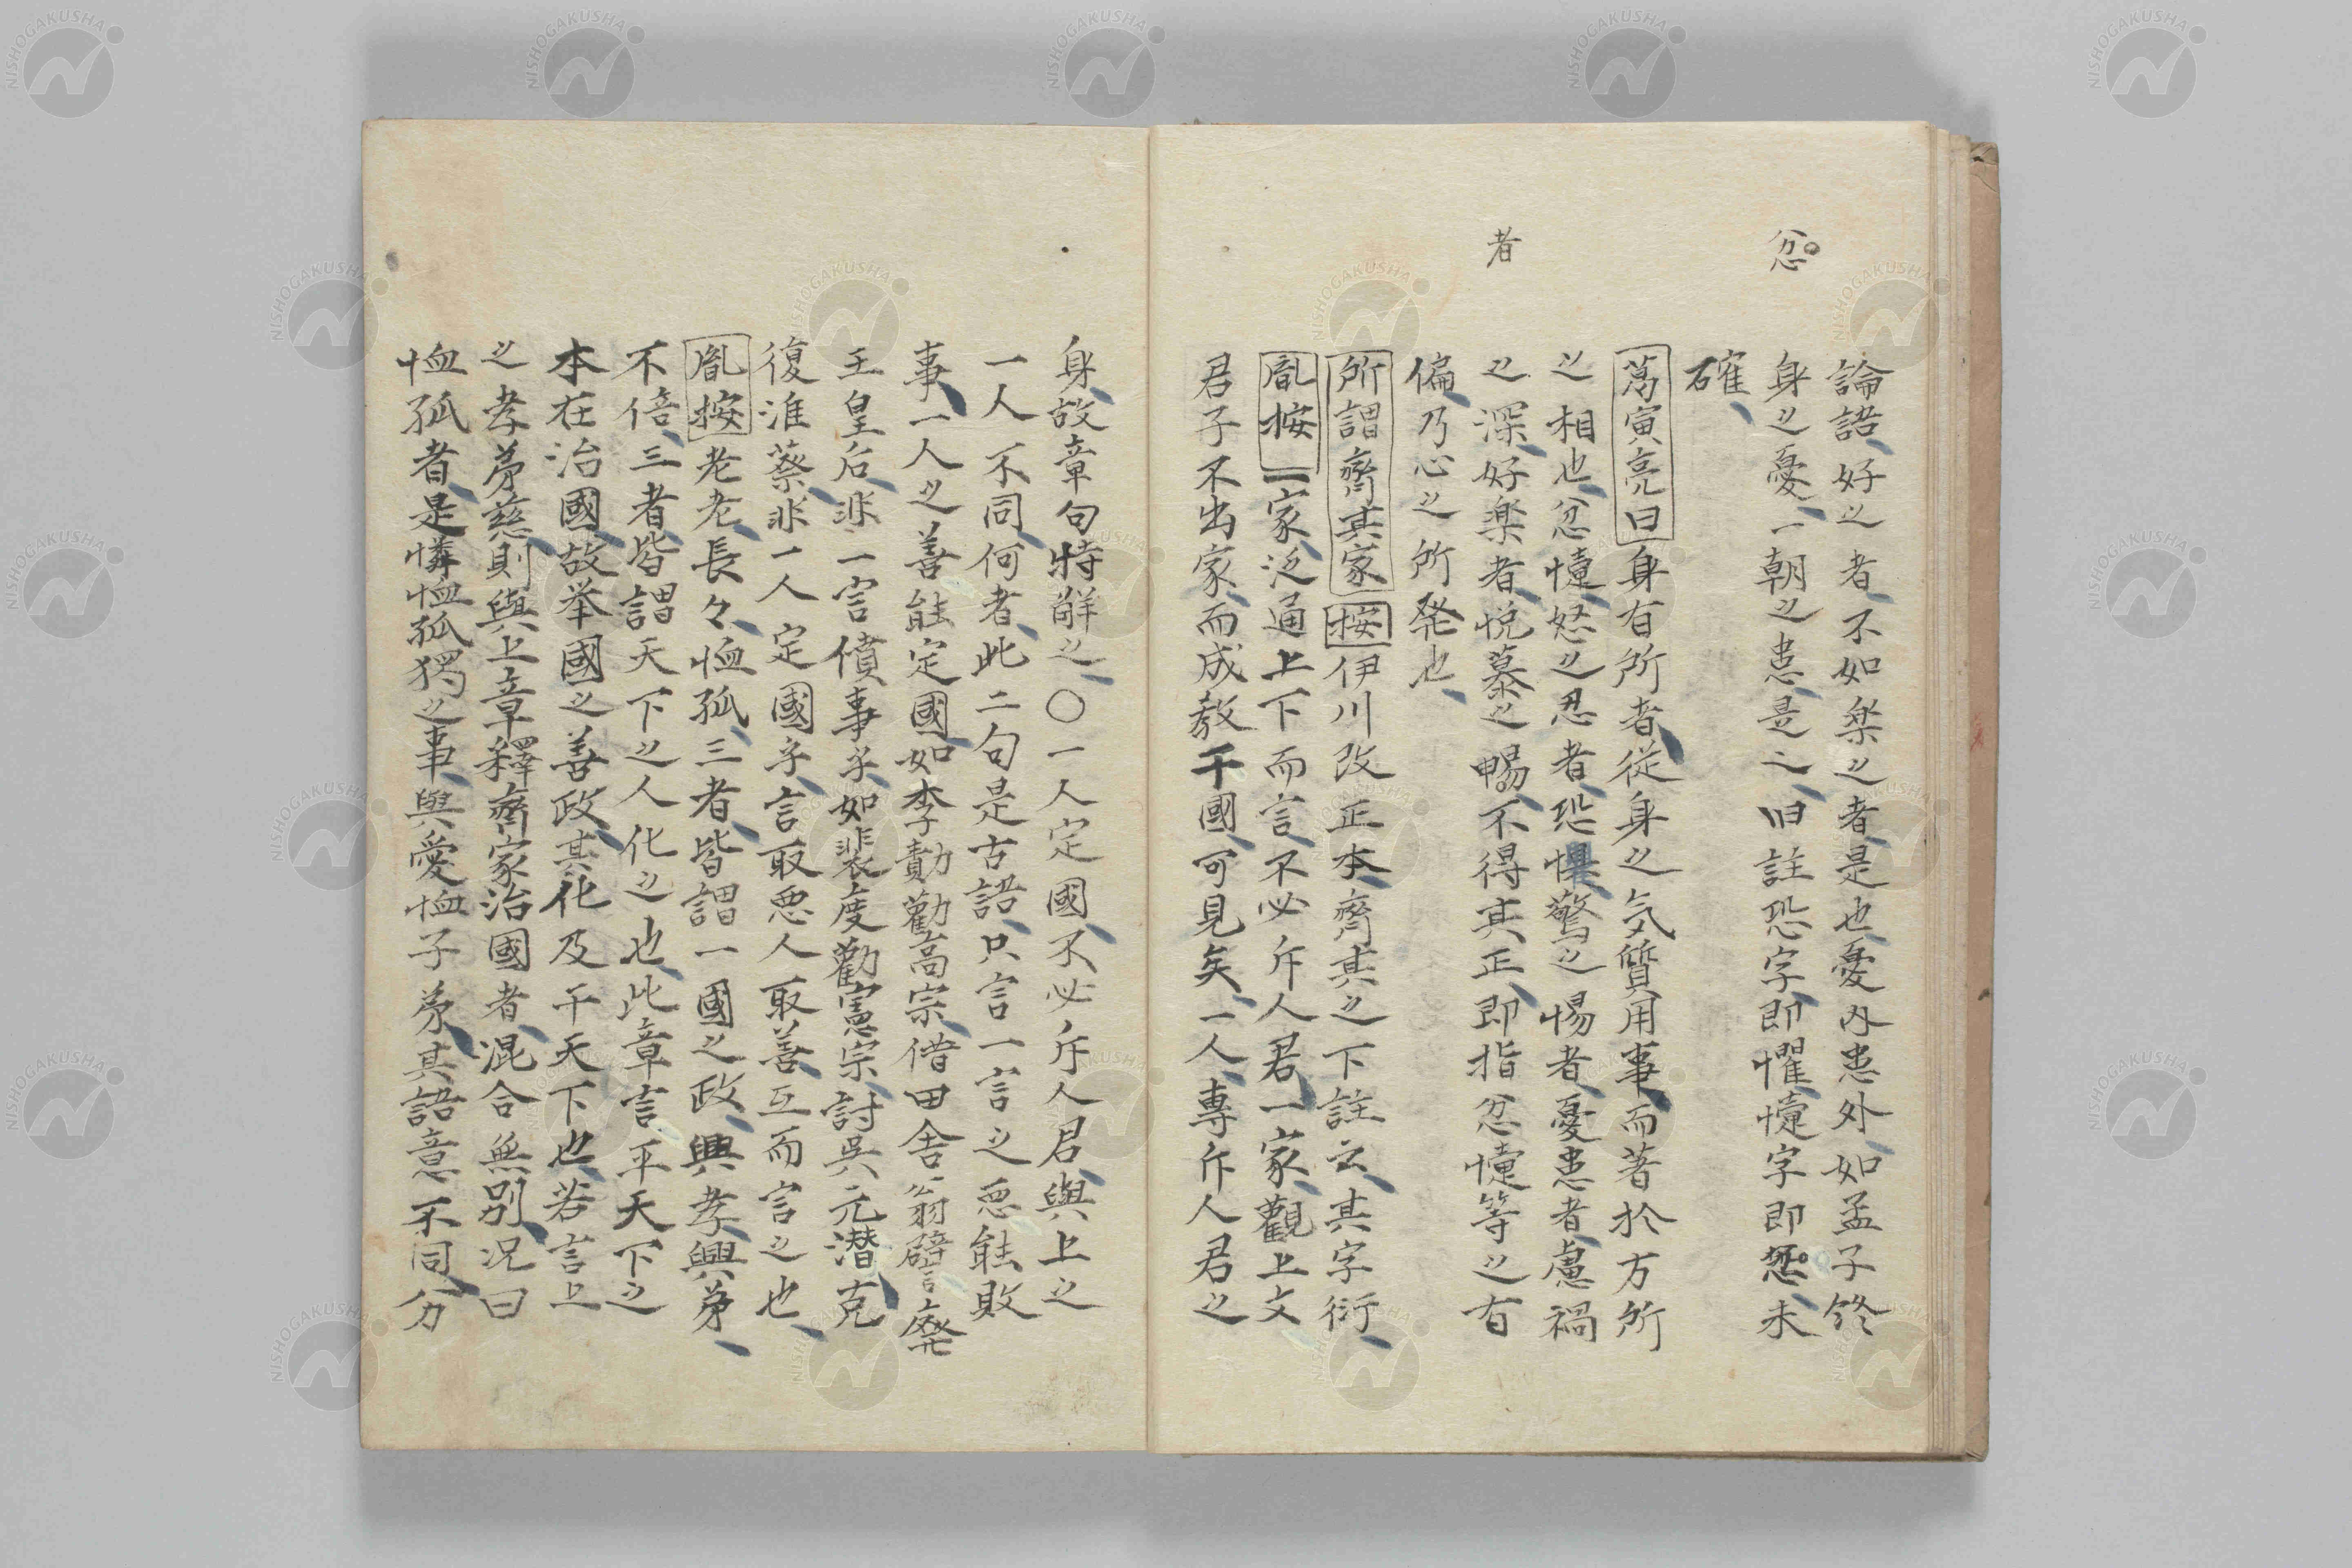 忿
者
論語好之者不如楽之者是也憂内患外如孟子終
身之憂一朝之患是之旧註恐字即懼懥字即怒未
確
萬寅亮曰身有所者從身之気質用事而著於方所
之相也忿懥怒之忍者恐懼驚之惕者憂患者慮禍
之深好楽者悦慕之暢不得其正即指忿懥等之有
偏乃心之所発也
所謂齊其家 按伊川改正本齊其之下註云其字衍
胤按一家泛通上下而言不必斥人君一家觀上文
君子不出家而成教于國可見矣一人專斥人君之
身故章句特觧之○一人定國不必斥人君與上之
一人不同何者此二句是古語只言一言之悪能敗
事一人之善能定國如李勣勸高宗借田舎翁譬言廃
王皇后非一言僨事乎如裴度勸憲宗討吳元濟克
復淮蔡非一人定國乎言取悪人取善互而言之也
胤按老老長々恤孤三者皆謂一國之政興孝興弟
不倍三者皆謂天下之人化之也此章言平天下之
本在治國故挙國之善政其化及于天下也若言上
之孝弟慈則與上章釋齊家治國者混合無別况曰
恤孤者是憐恤孤獨之事與愛恤子弟其語意不同分